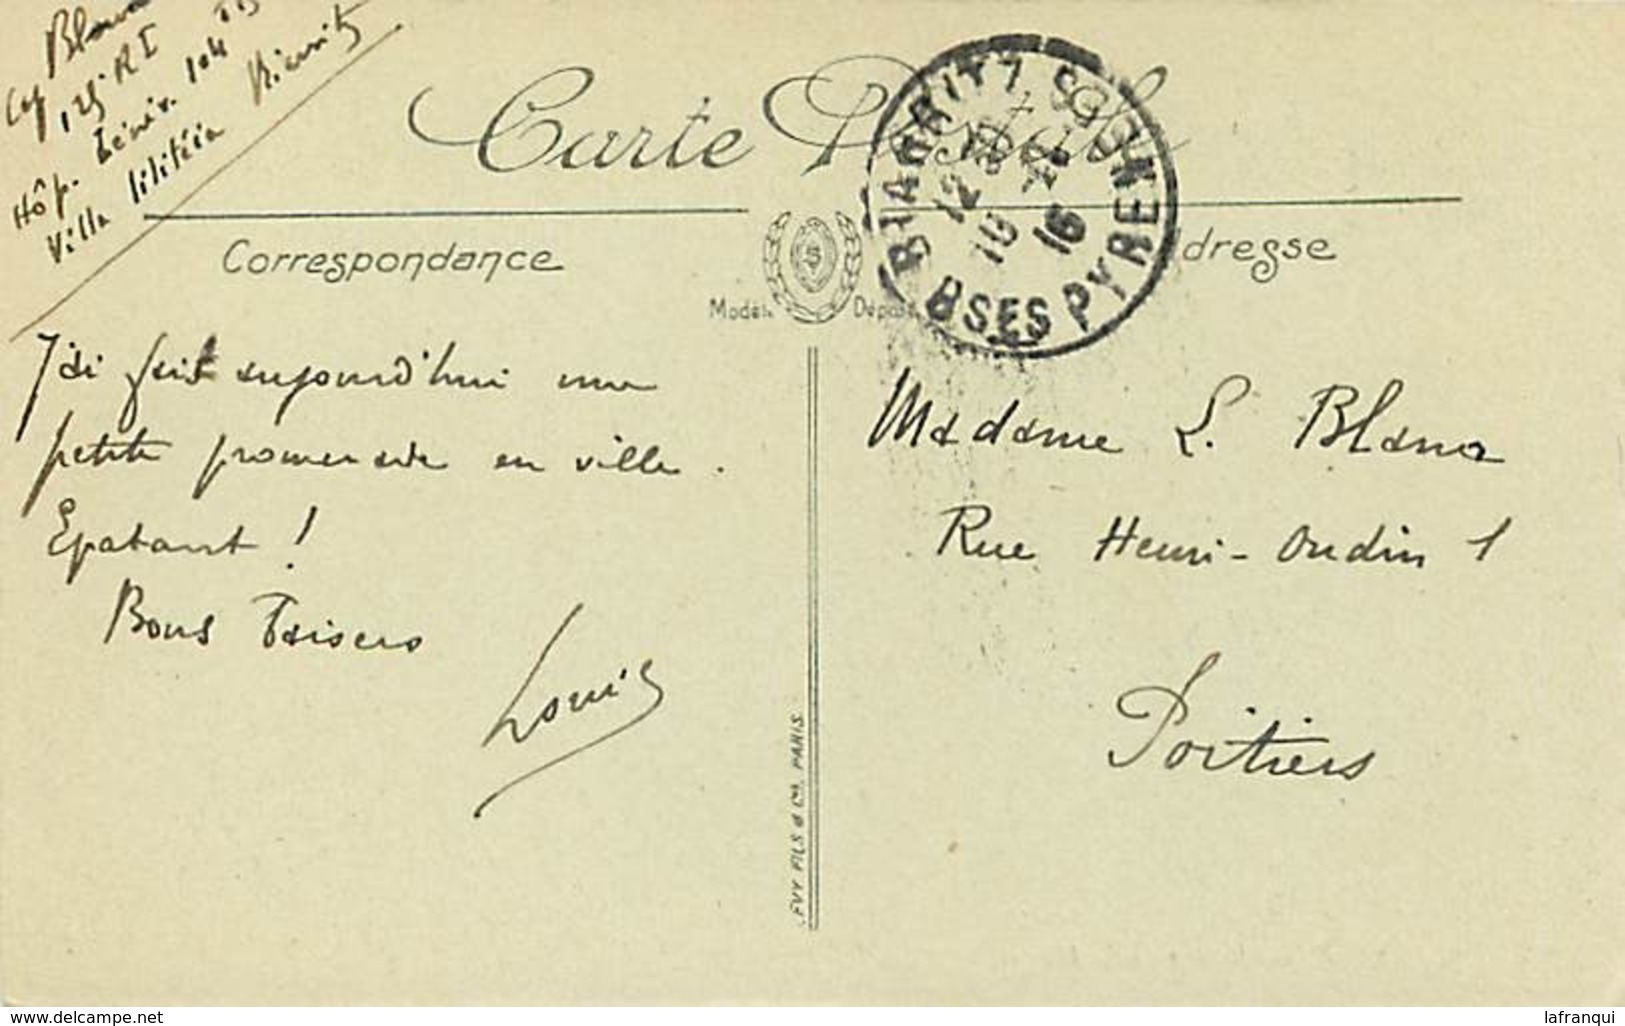 Blanc
Cap 125e RI
Hôp. Bénév. 104 bis
Villa Biarritz
Carte Postale
Correspondance
Modèle Déposé
Adresse
BIARRITZ
12
10 16
BSES PYRENEES
J'ai fait aujourd'hui une
petite promenade en ville.
Epatant !
Bons Baisers
Louis
Madame L. Blanc
Rue Henri-Oudin 1
Poitiers
LEVY FILS & Cie, PARIS.
www.delcampe.net
lafranqui